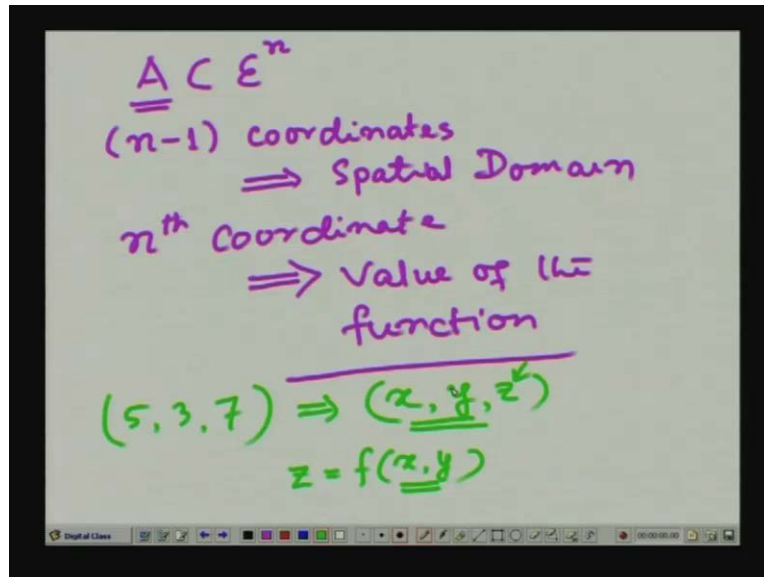 A ⊂ Ɛⁿ
(n-1) coordinates
⟹ Spatial Domain
nᵗʰ coordinate
⟹ Value of the
function
(5, 3, 7) ⇒ (x, y, z)
z = f(x, y)
Digital Class
00:00:00.00